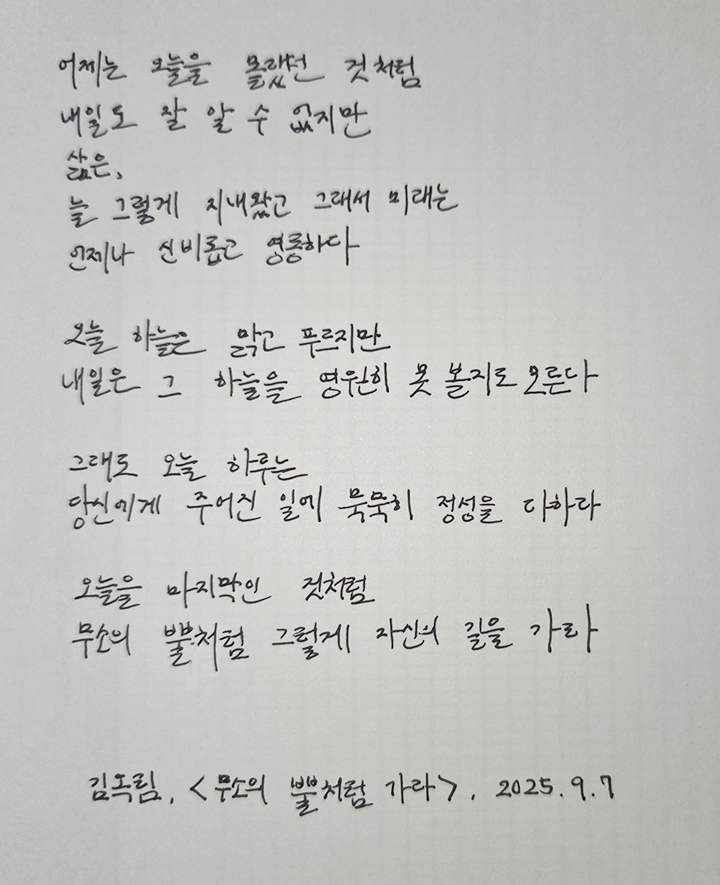 어제는 오늘을 몰랐던 것처럼
내일도 잘 알 수 없지만
삶은,
늘 그렇게 지내왔고 그래서 미래는
언제나 신비롭고 영롱하다
오늘 하늘은 맑고 푸르지만
내일은 그 하늘을 영원히 못 볼지도 모른다
그래도 오늘 하루는
당신에게 주어진 일에 묵묵히 정성을 다하라
오늘을 마지막인 것처럼
무소의 뿔처럼 그렇게 자신의 길을 가라
김옥림, <무소의 뿔처럼 가라>, 2025.9.7